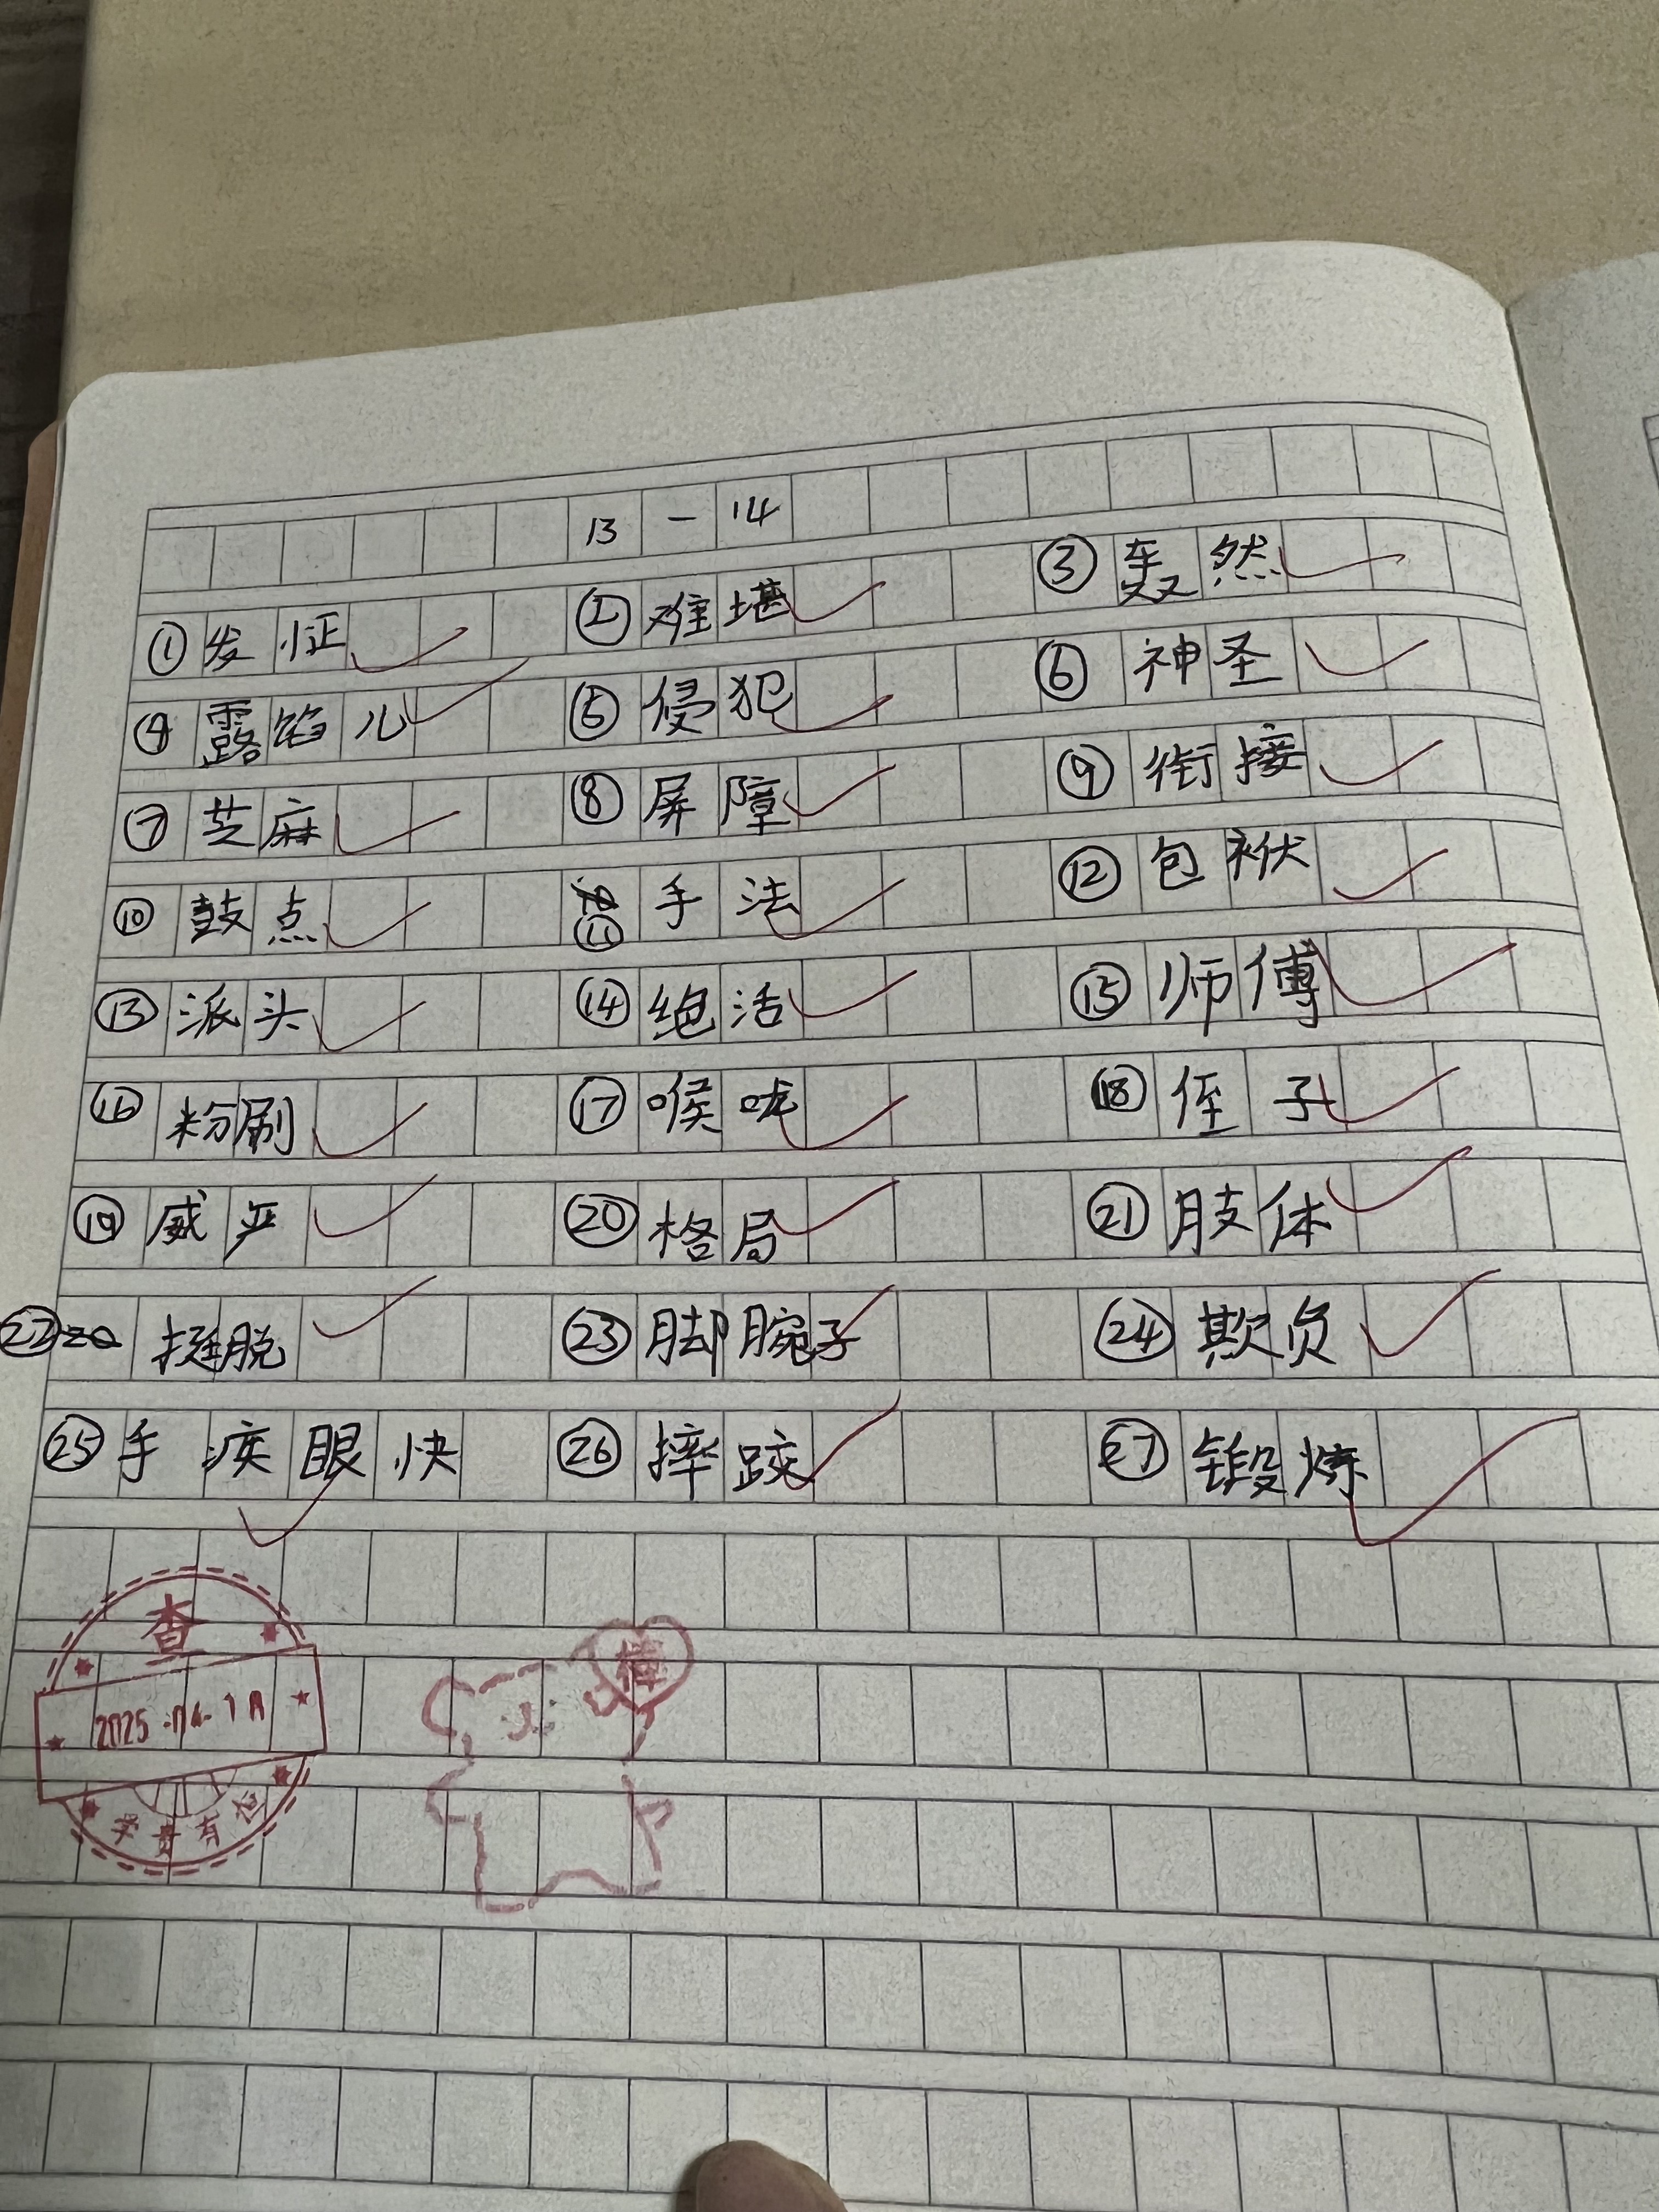 13 — 14
①发怔 ②难堪 ③轰然
④露馅儿 ⑤侵犯 ⑥神圣
⑦芝麻 ⑧屏障 ⑨衔接
⑩鼓点 ⑪手法 ⑫包袱
⑬派头 ⑭绝活 ⑮师傅
⑯粉刷 ⑰喉咙 ⑱侄子
⑲威严 ⑳格局 ㉑肢体
㉒挺脱 ㉓脚腕子 ㉔欺负
㉕手疾眼快 ㉖摔跤 ㉗锻炼
查
棒
学贵有